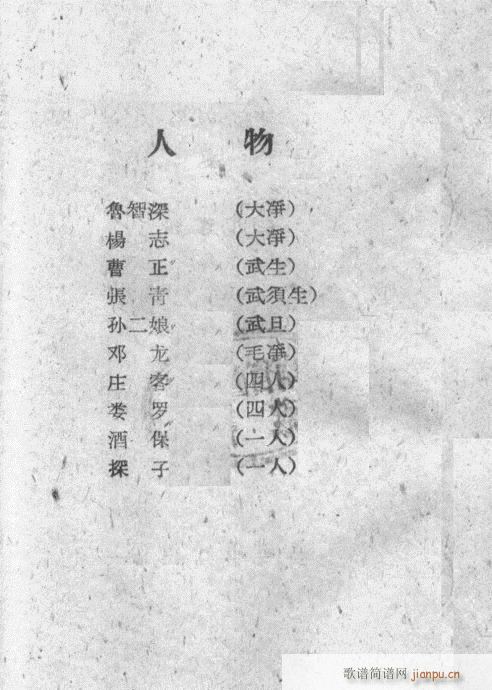 人 物
魯智深 (大凈)
楊 志 (大凈)
曹 正 (武生)
張 青 (武須生)
孙二娘 (武旦)
邓 龙 (毛凈)
庄 客 (四人)
娄 罗 (四人)
酒 保 (一人)
探 子 (一人)
歌谱简谱网 jianpu.cn